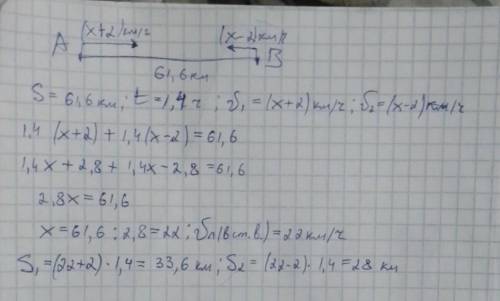 (x+2)км/ч (x-2)км/ч
A B
61,6 км
S = 61,6 км; t = 1,4 ч; v₁ = (x+2) км/ч; v₂ = (x-2) км/ч
1,4 (x+2) + 1,4(x-2) = 61,6
1,4x + 2,8 + 1,4x - 2,8 = 61,6
2,8x = 61,6
x = 61,6 : 2,8 = 22; vл(в ст.в.) = 22 км/ч
S₁ = (22+2) · 1,4 = 33,6 км; S₂ = (22-2) · 1,4 = 28 км